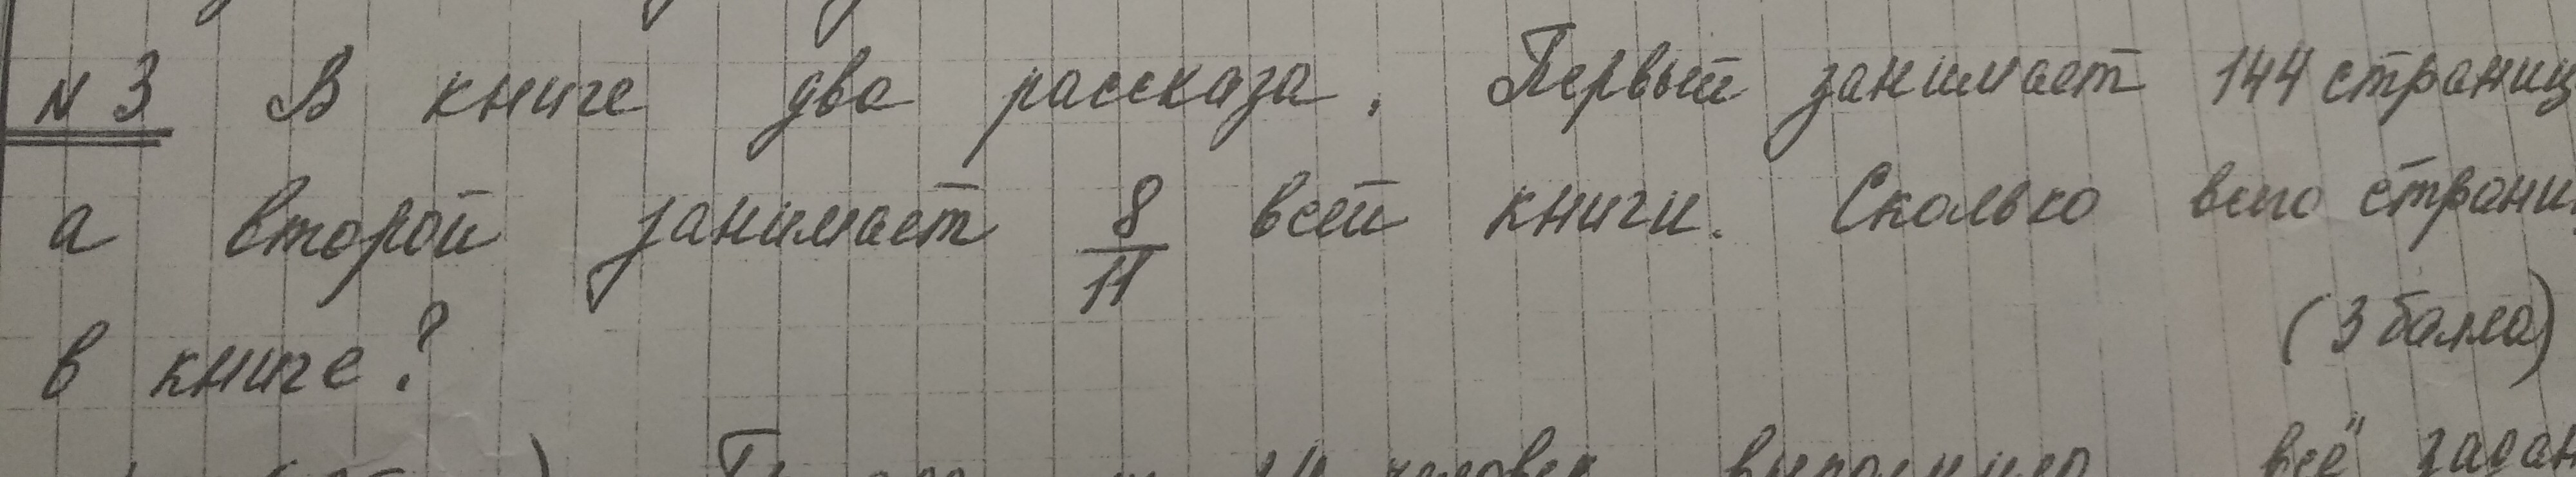 № 3 В книге два рассказа. Первый занимает 144 страниц
а второй занимает 8/11 всей книги. Сколько всего страни
в книге? (3 балла)
человек выполнило всё задан